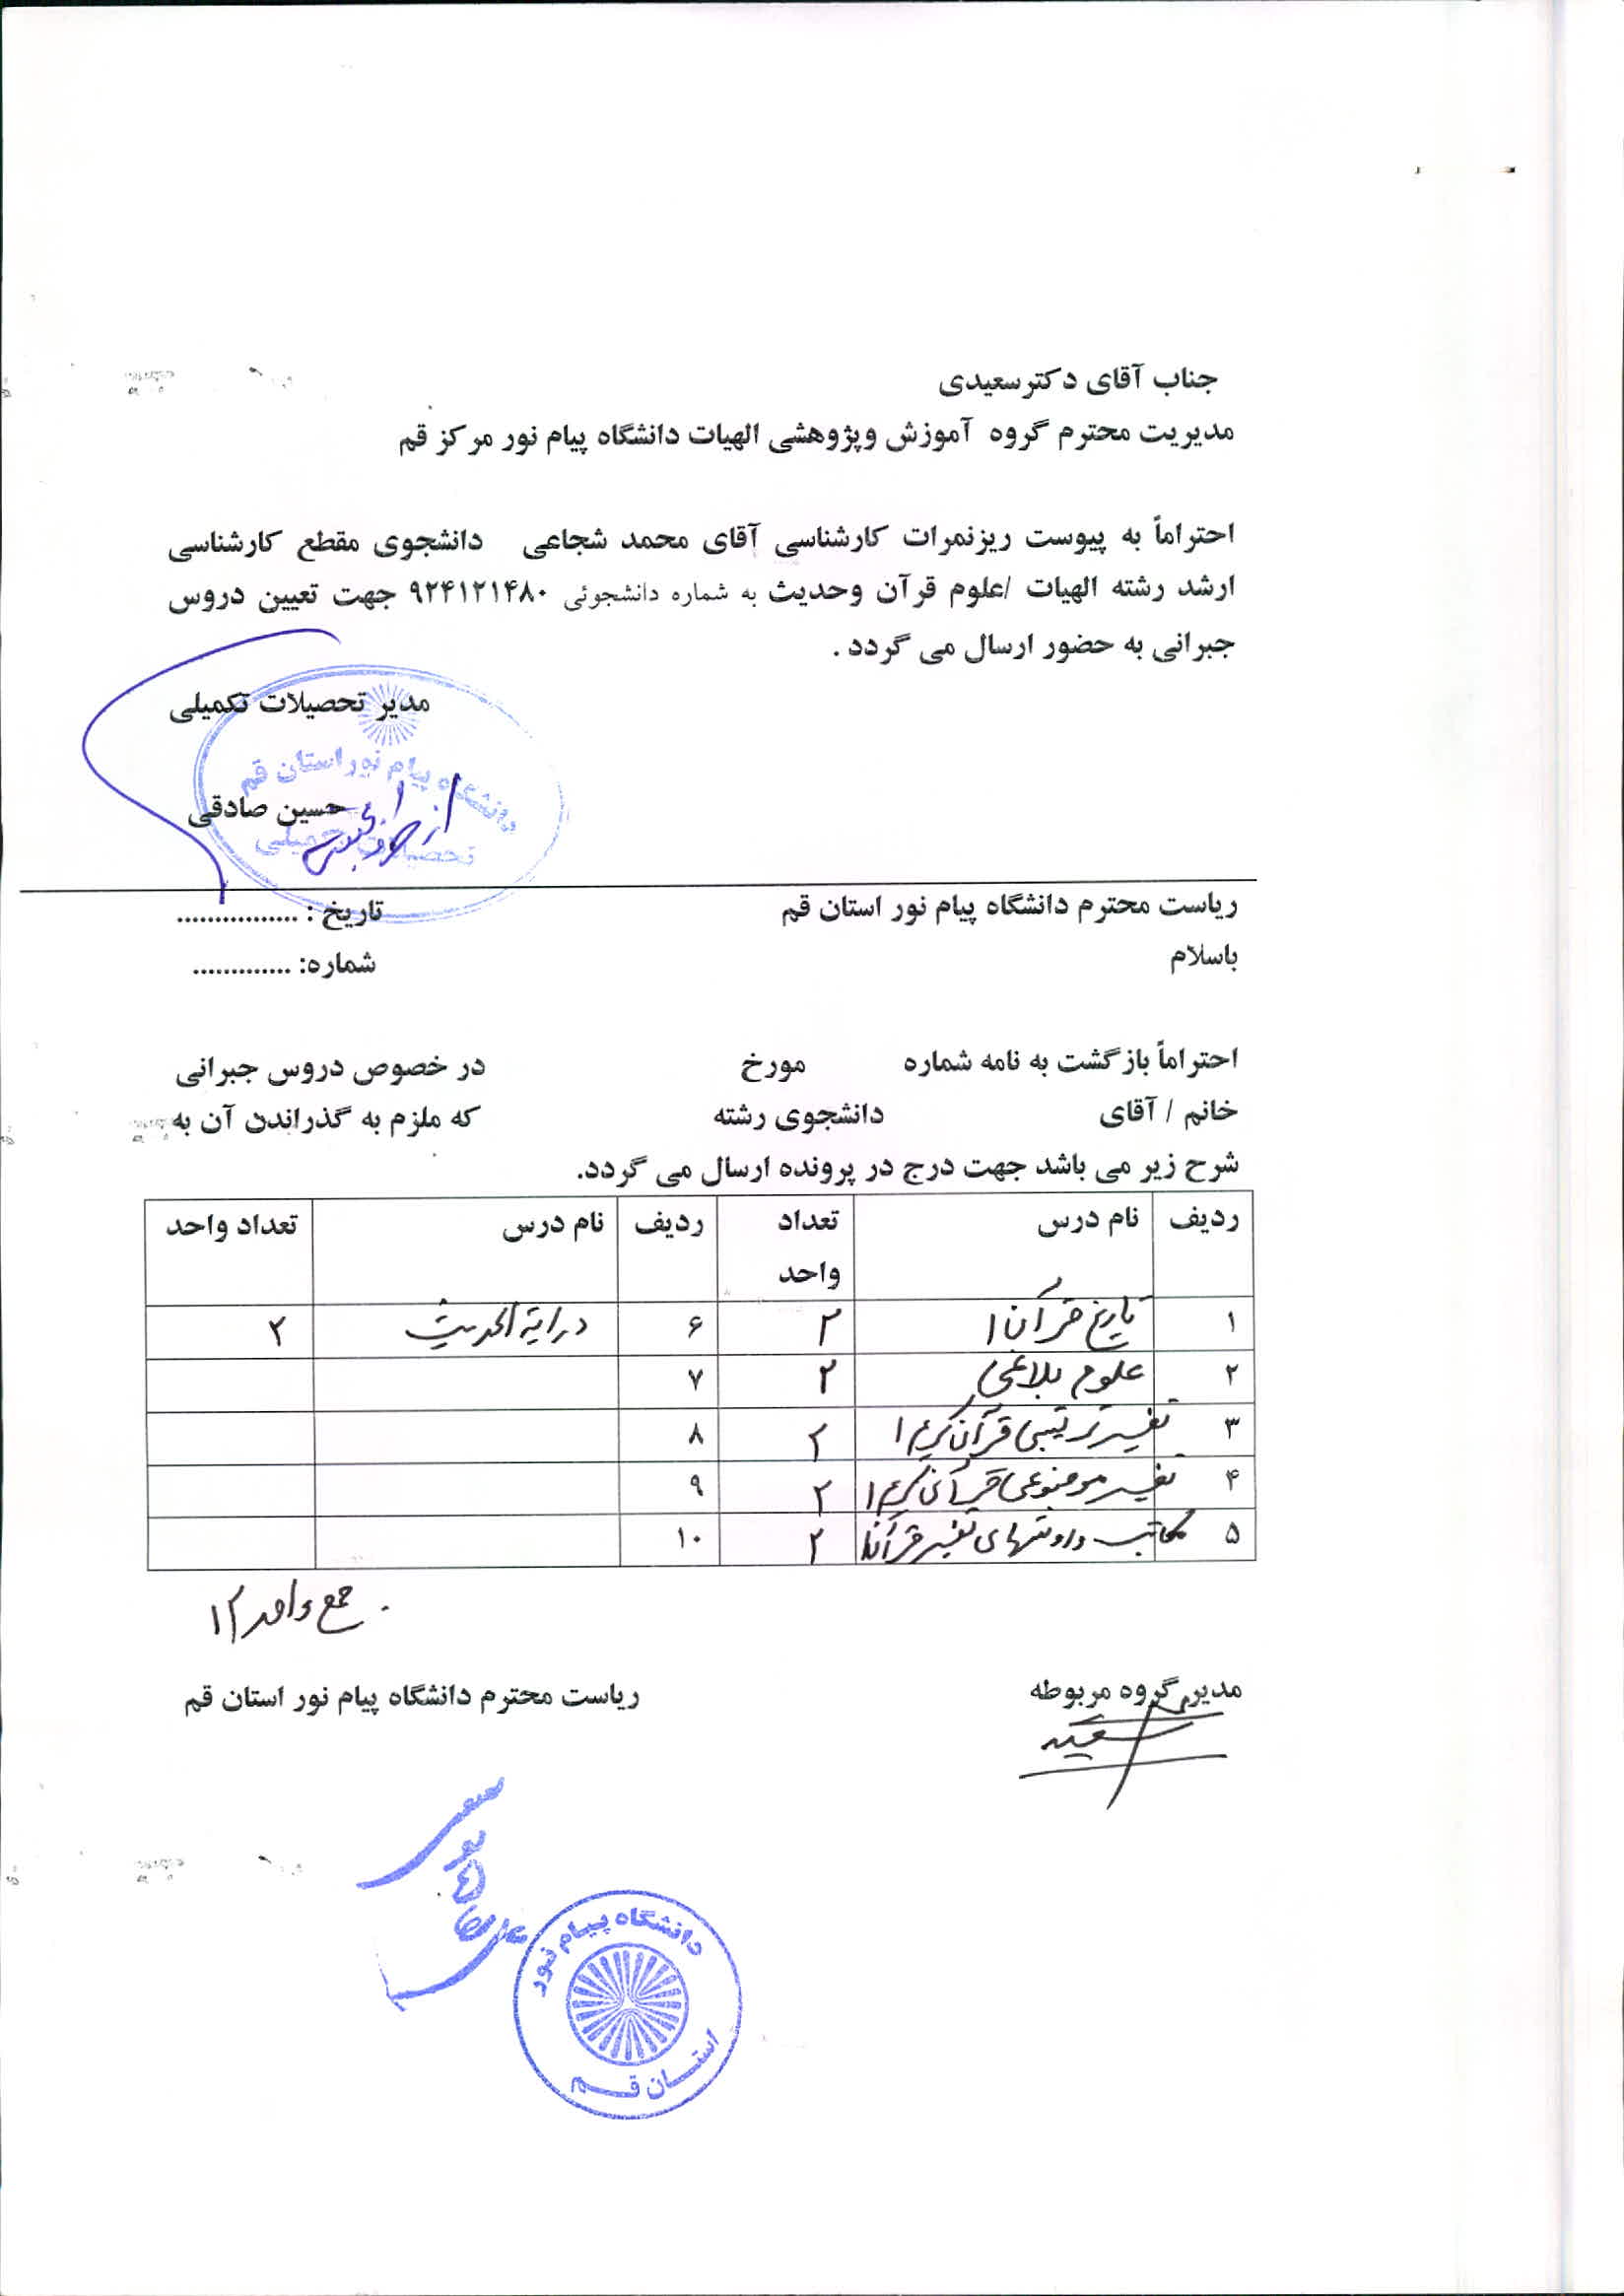 جناب آقای دکترسعیدی
مدیریت محترم گروه آموزش وپژوهشی الهیات دانشگاه پیام نور مرکز قم
احتراماً به پیوست ریزنمرات کارشناسی آقای محمد شجاعی دانشجوی مقطع کارشناسی
ارشد رشته الهیات /علوم قرآن وحدیث به شماره دانشجوئی ۹۲۴۱۲۱۴۸۰ جهت تعیین دروس
جبرانی به حضور ارسال می گردد .
مدیر تحصیلات تکمیلی
دانشگاه پیام نور استان قم
تحصیلات تکمیلی
حسین صادقی
از طرف
ریاست محترم دانشگاه پیام نور استان قم تاریخ : ................
باسلام شماره: .............
احتراماً بازگشت به نامه شماره مورخ در خصوص دروس جبرانی
خانم / آقای دانشجوی رشته که ملزم به گذراندن آن به
شرح زیر می باشد جهت درج در پرونده ارسال می گردد.
ردیف نام درس تعداد واحد ردیف نام درس تعداد واحد
۱ تاریخ قرآن ۱ ۲ ۶ درایة الحدیث ۲
۲ علوم بلاغی ۲ ۷
۳ تفسیر ترتیبی قرآن کریم ۱ ۲ ۸
۴ تفسیر موضوعی قرآن کریم ۱ ۲ ۹
۵ مکاتب و روشهای تفسیر قرآن ۱ ۲ ۱۰
جمع واحد ۱۲
مدیر گروه مربوطه ریاست محترم دانشگاه پیام نور استان قم
سعیدی
دانشگاه پیام نور
استان قم